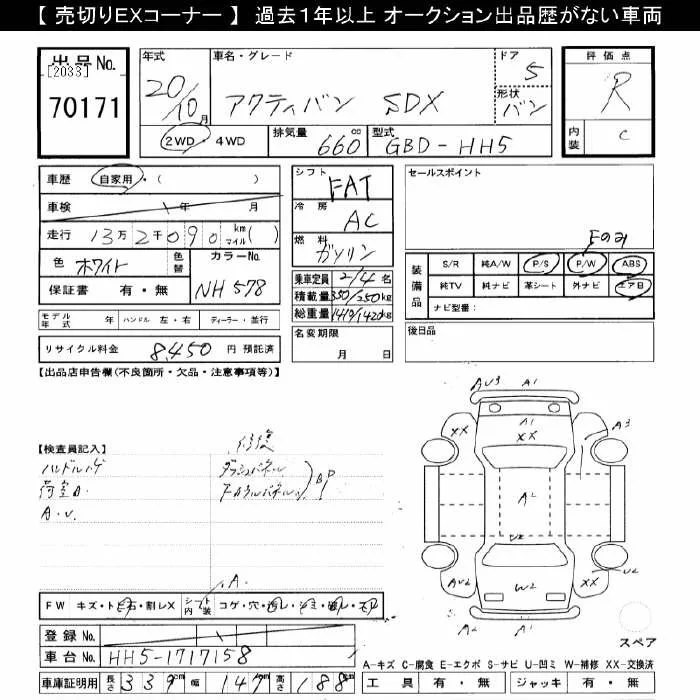 【 売切りEXコーナー 】 過去1年以上 オークション出品歴がない車両
出品No.
【2033】
70171
年式 20/10月
車名・グレード アクティバン SDX
ドア 5
形状 バン
2WD・4WD
排気量 660cc
型式 GBD-HH5
評価点 R
内装 C
車歴 自家用・( )
車検 年 月
走行 13万2千090 km マイル( )
色 ホワイト 色替
カラーNo. NH578
保証書 有・無
シフト FAT
冷房 AC
燃料 ガソリン
乗車定員 2/4名
積載量 350/250kg
総重量 1410/1420kg
名変期限 月 日
セールスポイント
Fのみ
装備品
S/R 純A/W P/S P/W ABS
純TV 純ナビ 革シート 外ナビ エアB
ナビ型番:
後日品
モデル年式 年 ハンドル 左・右 ディーラー・並行
リサイクル料金 8,450 円 預託済
【出品店申告欄(不良箇所・欠品・注意事項等)】
【検査員記入】
修復
ハンドルハゲ ダッシュパネル
荷室A. フロアパネル BP
A.U.
.A.
FW キズ・トビ石・割レX シート内装 コゲ・穴・汚レ・シミ・破レ・スレ
登録No.
車台No. HH5-1717158
車庫証明用 長さ 339 幅 147 高さ 188cm
AU3 A1
A1
XX XX
A3
A2
U2
AU2 W2 XX U2
A2 A1
スペア
A-キズ C-腐食 E-エクボ S-サビ U-凹ミ W-補修 XX-交換済
工具 有・無 ジャッキ 有・無